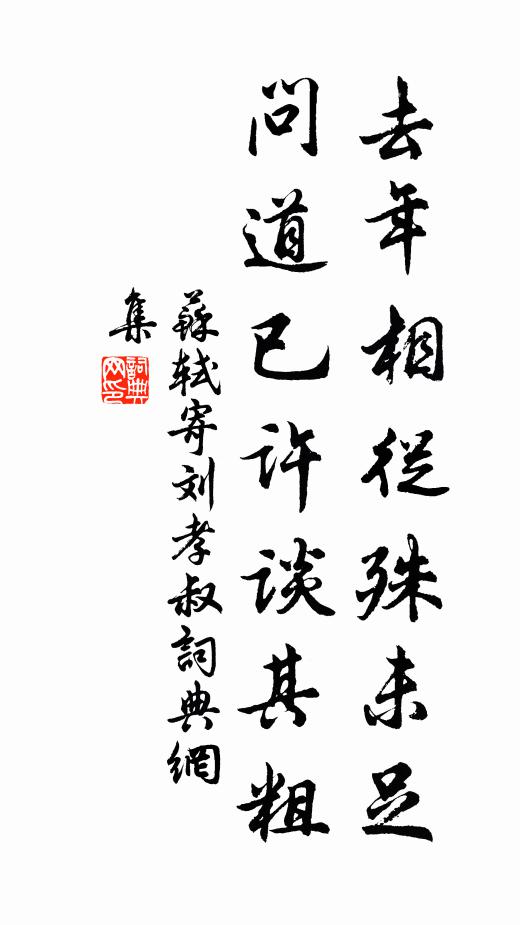 去年相從殊未足
問道已許談其粗
蘇軾寄刘孝叔詞典網
集
詞典
网印